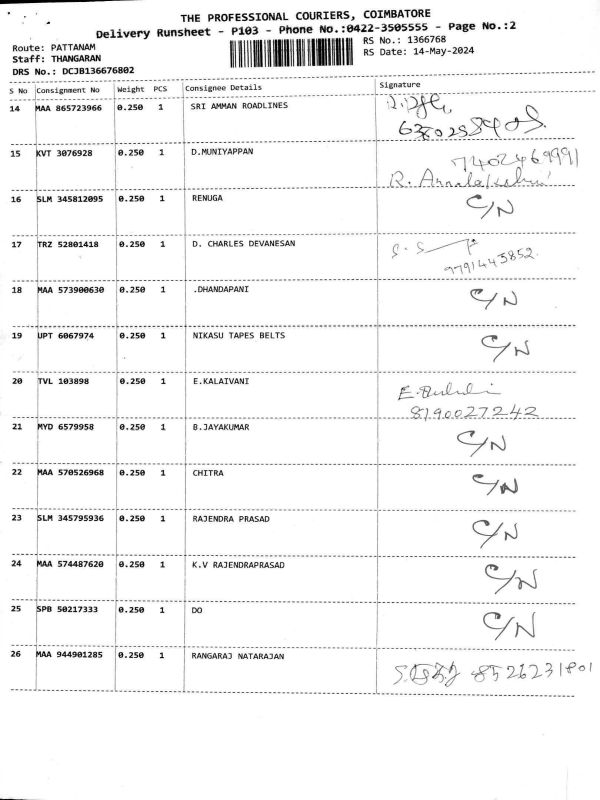 THE PROFESSIONAL COURIERS, COIMBATORE
Delivery Runsheet - P103 - Phone No.:0422-3505555 - Page No.:2
Route: PATTANAM
RS No.: 1366768
Staff: THANGARAN
RS Date: 14-May-2024
DRS No.: DCJB136676802
S No Consignment No Weight PCS Consignee Details Signature
14 MAA 865723966 0.250 1 SRI AMMAN ROADLINES
15 KVT 3076928 0.250 1 D.MUNIYAPPAN 7402469991
R.
16 SLM 345812095 0.250 1 RENUGA C/N
17 TRZ 52801418 0.250 1 D. CHARLES DEVANESAN
9791445852.
18 MAA 573900630 0.250 1 .DHANDAPANI C/N
19 UPT 6067974 0.250 1 NIKASU TAPES BELTS C/N
20 TVL 103898 0.250 1 E.KALAIVANI
8190027242
21 MYD 6579958 0.250 1 B.JAYAKUMAR C/N
22 MAA 570526968 0.250 1 CHITRA C/N
23 SLM 345795936 0.250 1 RAJENDRA PRASAD C/N
24 MAA 574487620 0.250 1 K.V RAJENDRAPRASAD C/N
25 SPB 50217333 0.250 1 DO C/N
26 MAA 944901285 0.250 1 RANGARAJ NATARAJAN 8526231801